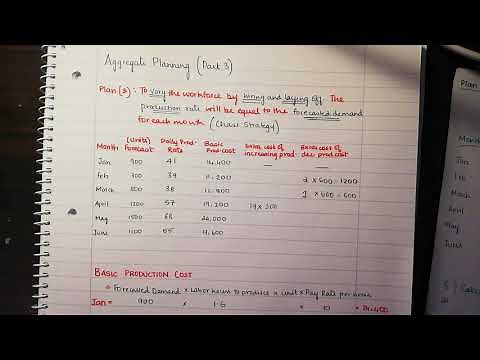 Aggregate Planning (Part 3)
Plan (3) : To vary the workforce by hiring and laying off. The
production rate will be equal to the forecasted demand
for each month (Chase Strategy)
Month (Units) Forecast Daily Prod. Rate Basic Prod. cost Extra cost of increasing prod. Extra cost of dec. prod cost
Jan 900 41 14,400 —
Feb 700 39 11,200 — 2 x 600 = 1200
March 800 38 12,800 — 1 x 600 = 600
April 1200 57 19,200 19 x 300
May 1500 68 24,000
June 1100 55 17,600
BASIC PRODUCTION COST
Forecasted Demand x Labor hours to produce a unit x Pay Rate per hour
Jan = 900 x 1.6 x 10 = 14,400
Plan
Month
Jan
Feb
March
April
May
June